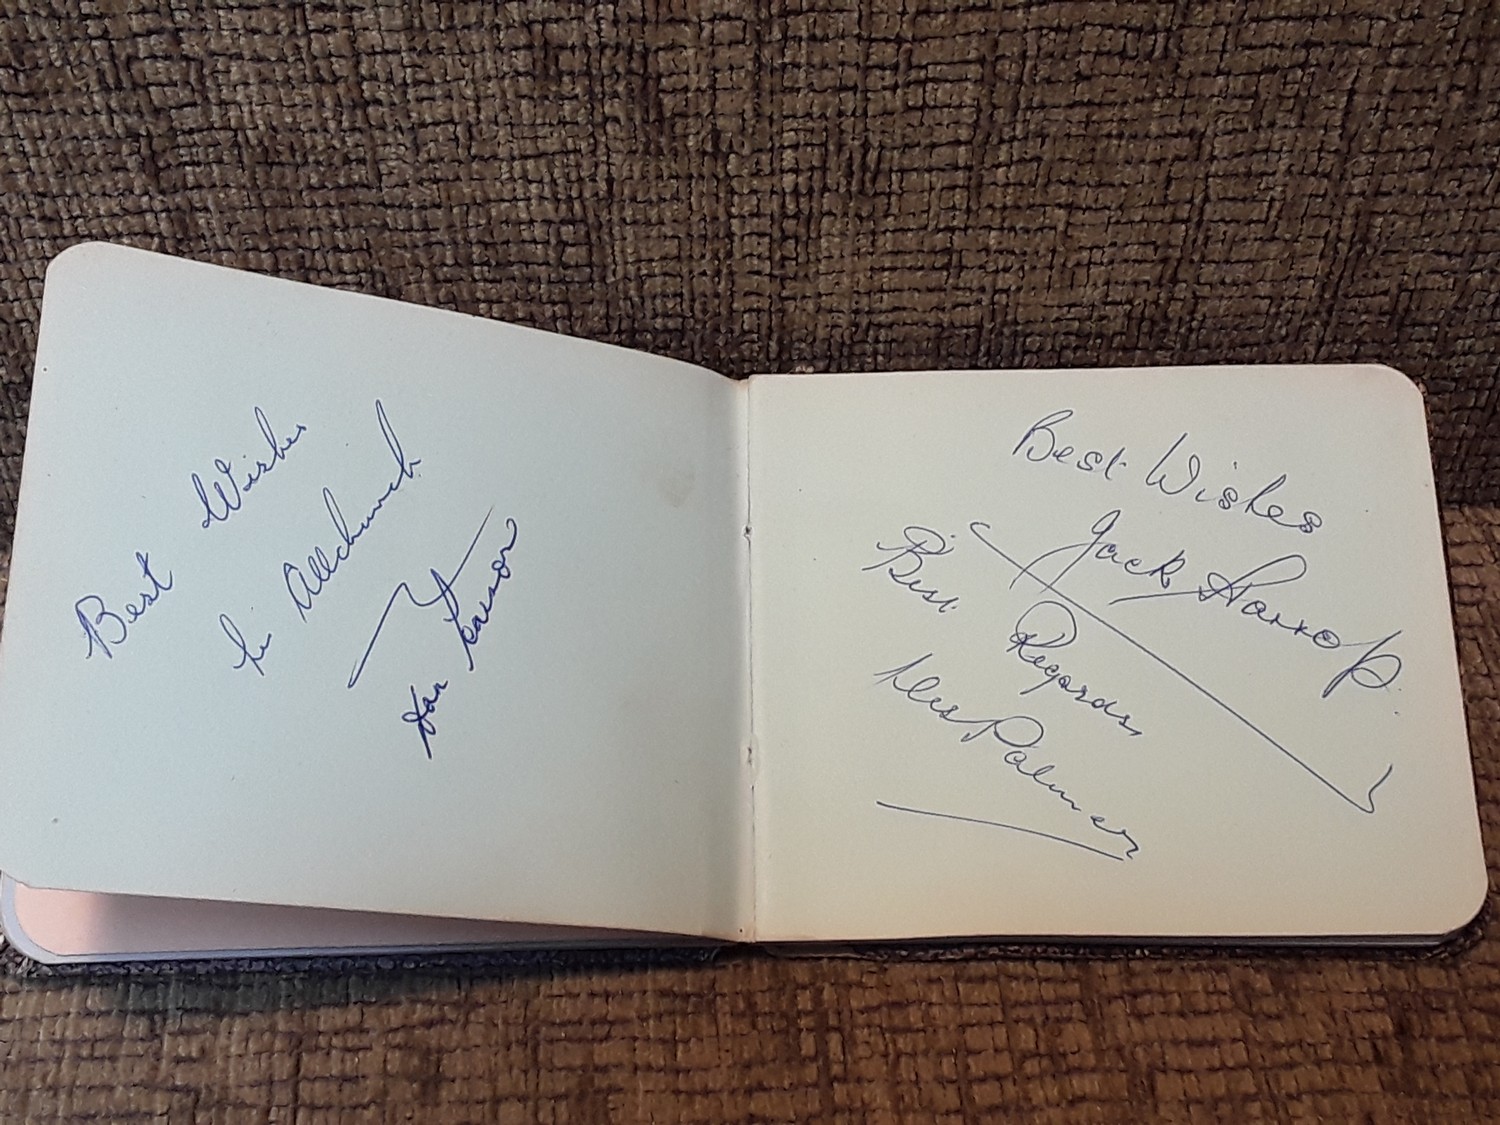 Best Wishes
Len Allchurch
Don Pearson
Best Wishes
Jack Harrop.
Best Regards,
Des Palmer